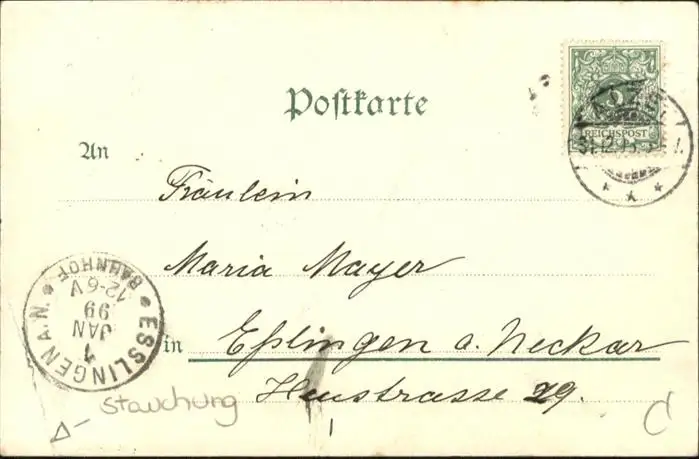 Postkarte
An
Fräulein
Maria Mayer
in Eßlingen a. Neckar
Heustrasse 29.
5
REICHSPOST
31.12.98. 5-
ESSLINGEN A. N.
1
JAN
99
12-6V
BAHNHOF
Stauchung
C